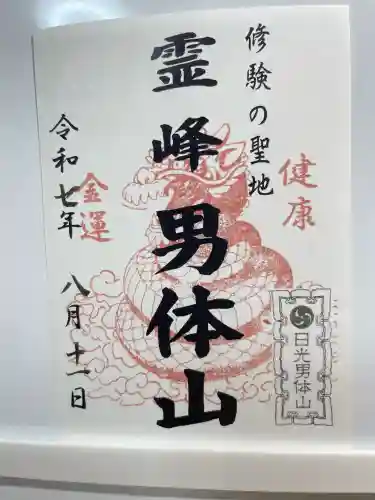 修験の聖地
健康
霊峰男体山
金運
令和七年 八月十一日
日光男体山